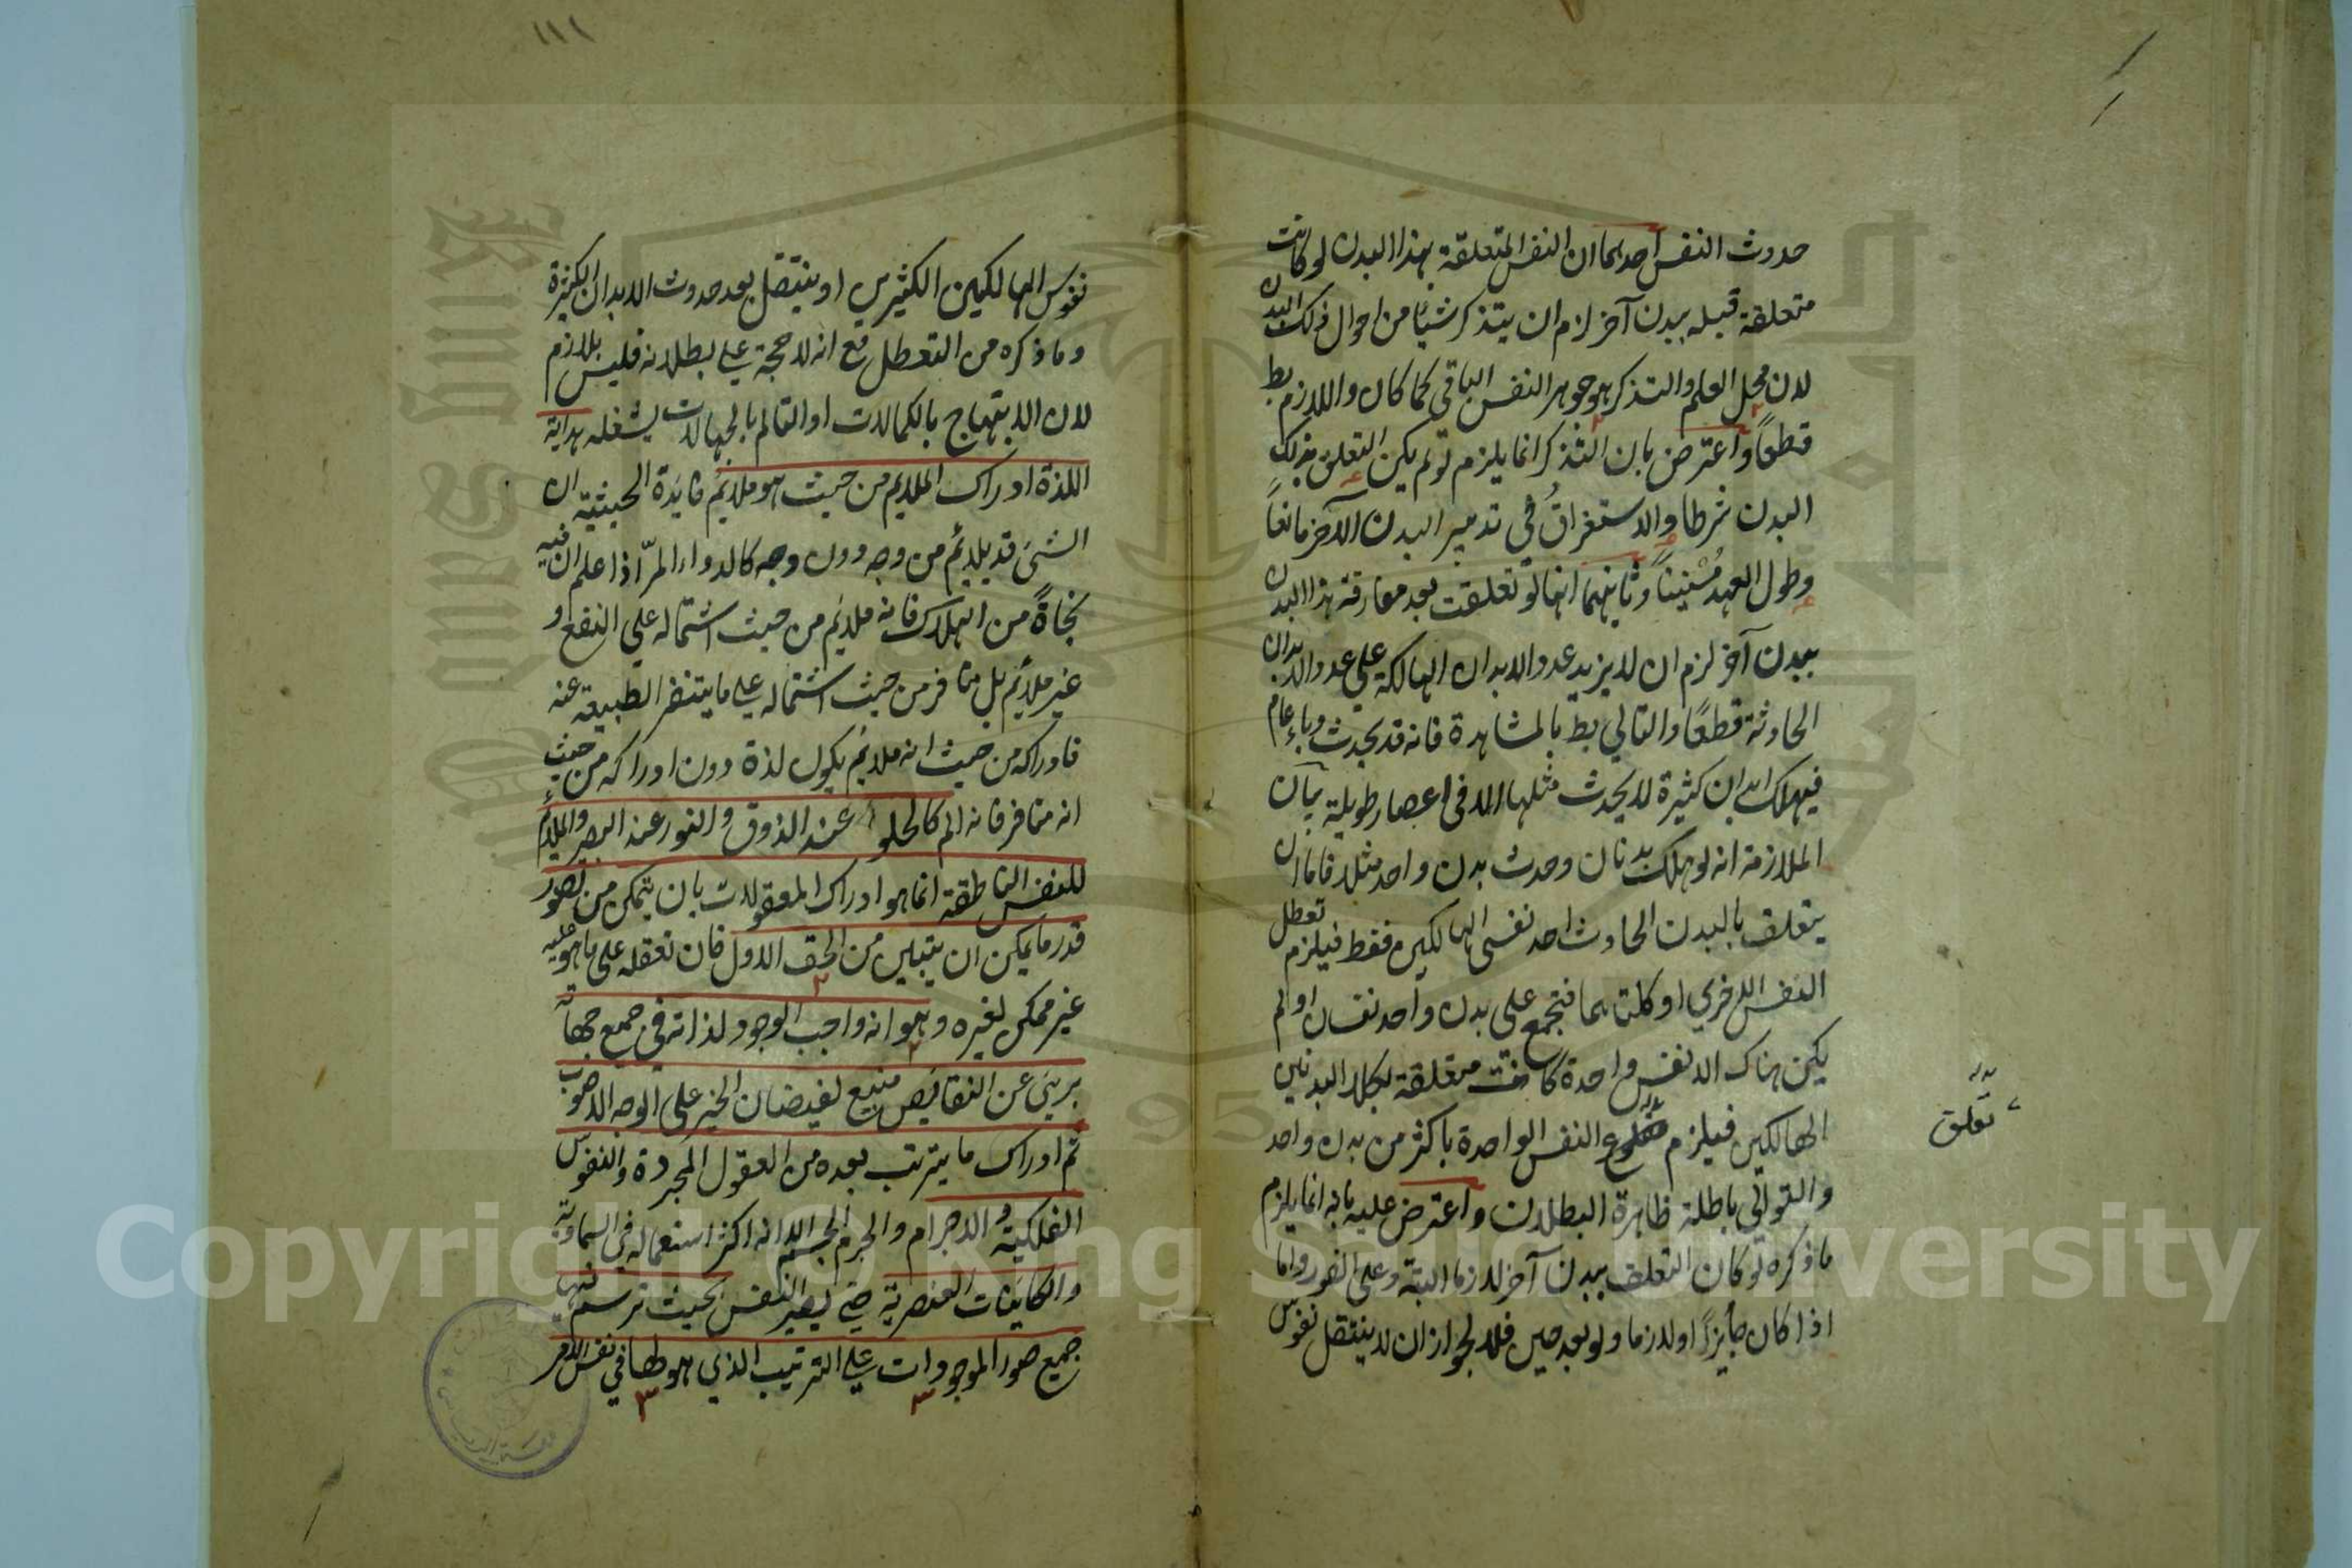 حدوث النفس احديهما ان النفس المتعلقة بهذا البدن لو كانت
متعلقة قبله ببدن آخر لزم ان يتذكر شيئا من احوال ذلك البدن
لان محل العلم والتذكر هو جوهر النفس الباقي كما كان واللازم بط
قطعاً واعترض بان التذكر انما يلزم لو لم يكن التعلق بذلك
البدن شرطا والاستغراق في تدبير البدن الآخر مانعاً
وطول العهد مُنسِياً وثانيهما انها لو تعلقت بعد مفارقة هذا البدن
ببدن آخر لزم ان لا يزيد عدد الابدان الهالكة علي عدد الابدان
الحادثة قطعًا والتالي بط بالمشاهدة فانه قد يحدث وباء عام
فيهلك ابدان كثيرة لا يحدث مثلها الا في اعصار طويلة بيان
الملازمة انه لو هلك بدنان وحدث بدن واحد مثلا فاما ان
يتعلق بالبدن الحادث احد نفسي الهالكين فقط فيلزم تعطل
النفس الاخري او كلتاهما فتجتمع علي بدن واحد نفسان او لم
يكن هناك الا نفس واحدة كانت متعلقة بكلا البدنين
الهالكين فيلزم النفس الواحدة باكثر من بدن واحد
تعلق
والتوالي باطلة ظاهرة البطلان واعترض عليه بانه انما يلزم
ما ذكره لو كان التعلق ببدن آخر لازما البتة وعلي الفور واما
اذا كان جايزاً او لازما ولو بعد حين فلا لجواز ان لا ينتقل نفوس
١١١
نفوس الهالكين الكثيرين او ينتقل بعد حدوث الابدان الكثيرة
وما ذكره من التعطل مع انه لا حجة علي بطلانه فليس بلازم
لان الابتهاج بالكمالات او التالم بالجهالات يشغله هداية
اللذة ادراك الملايم من حيث هو ملايم فايدة الحيثية ان
الشئ قد يلايم من وجه دون وجه كالدواء المرّ اذا علم ان فيه
نجاةً من الهلاك فانه ملايم من حيث اشتماله علي النفع و
غير ملايم بل منافر من حيث اشتماله علي ما يتنفر الطبيعة عنه
فادراكه من حيث انه ملايم يكون لذة دون ادراكه من حيث
انه منافر فانه الم كالحلو عند الذوق والنور عند البصر والملايم
للنفس الناطقة انما هو ادراك المعقولات بان يتمكن من تصور
قدر ما يمكن ان يتبين من الحق الاول فان تعقله علي ما هو عليه
غير ممكن لغيره وهو انه واجب الوجود لذاته في جميع جهاته
بريئ عن النقايص منبع لفيضان الخير علي الوجه الاصوب
ثم ادراك ما يترتب بعده من العقول المجردة والنفوس
الفلكية والاجرام والجرم الجسم الا انه اكثر استعماله في السماوية
والكاينات العنصرية حتي يصير النفس بحيث ترتسم فيها
جميع صور الموجودات علي الترتيب الذي هو لها في نفس الامر
Copyright © King Saud University
King Saud University
1957